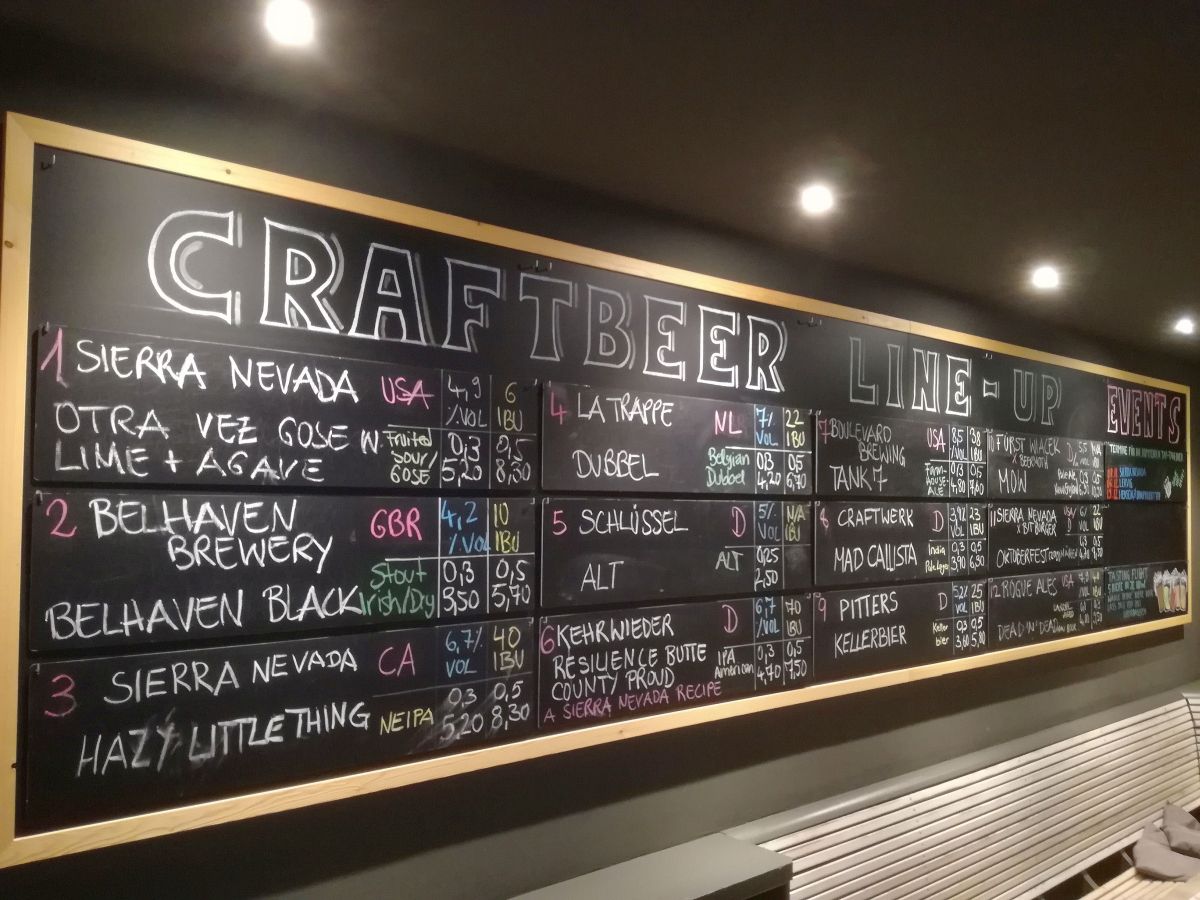 CRAFTBEER LINE-UP
1 SIERRA NEVADA USA 4,9 %VOL 6 IBU
OTRA VEZ GOSE W.
LIME + AGAVE
Fruited Sour/ GOSE
0,3 5,20 0,5 8,30
2 BELHAVEN BREWERY GBR 4,2 %VOL 10 IBU
BELHAVEN BLACK
Stout Irish/Dry
0,3 3,50 0,5 5,70
3 SIERRA NEVADA CA 6,7% VOL 40 IBU
HAZY LITTLE THING NEIPA
0,3 5,20 0,5 8,30
4 LA TRAPPE NL 7% VOL 22 IBU
DUBBEL
Belgian Dubbel
0,3 4,20 0,5 6,70
5 SCHLÜSSEL D 5% VOL N/A IBU
ALT ALT
0,25 2,50
6 KEHRWIEDER D 6,7 %VOL 70 IBU
RESILIENCE BUTTE
COUNTY PROUD
IPA American
0,3 4,70 0,5 7,50
A SIERRA NEVADA RECIPE
7 BOULEVARD BREWING USA 8,5 %VOL 38 IBU
TANK 7
FARM- HOUSE- ALE
0,3 4,80 0,5 7,60
8 CRAFTWERK D 3,9% VOL 23 IBU
MAD CALLISTA
India Pale Lager
0,3 3,90 0,5 6,90
9 PITTERS D 5,2% VOL 25 IBU
KELLERBIER
Keller bier
0,3 3,60 0,5 5,80
FÜRST WIACEK
MOW
11 SIERRA NEVADA
x BITBURGER
OKTOBERFEST
ROGUE ALES USA
DEAD 'N' DEAD
EVENTS
SIERRA NEVADA
LERVIG
TASTING FLIGHT